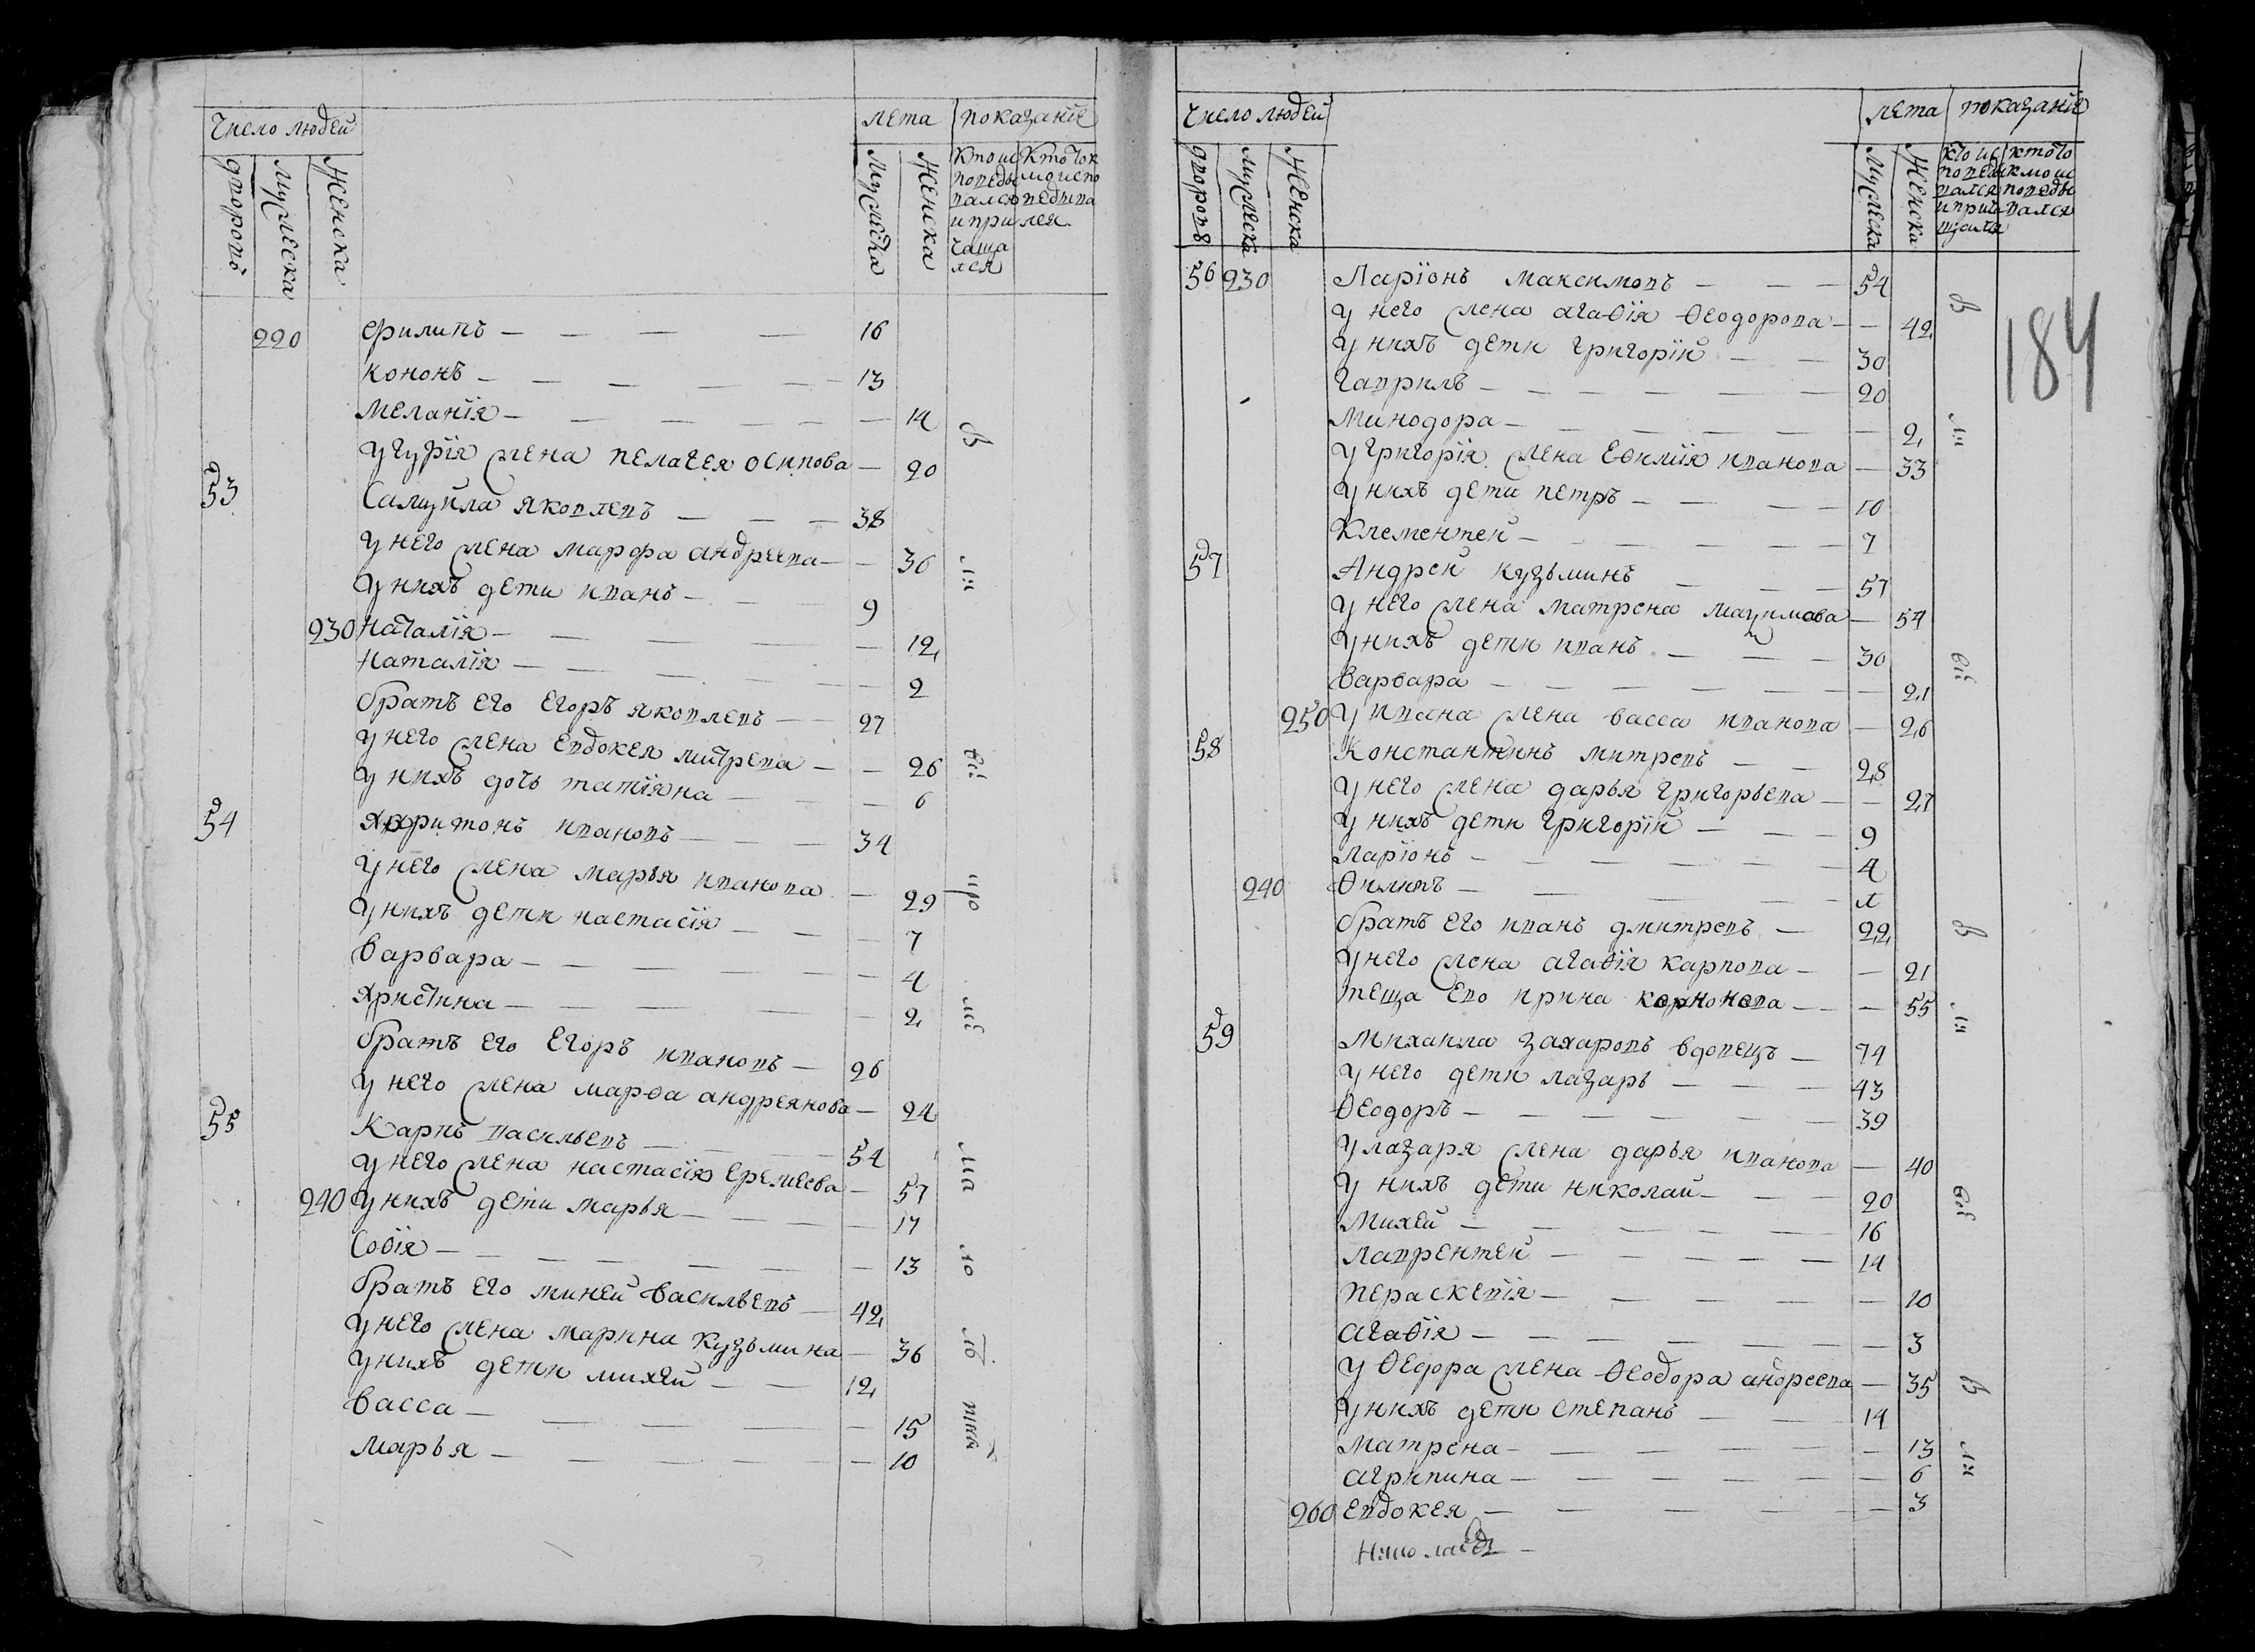 Число людей
лета
показанїе
дворовъ
мужеска
женска
мужеска
женска
Кто ис
поведы
вался
и при
чаща
лся
Кто ток
мо испо
ведыва
лся
220 Филипъ — 16
Кононъ — 13
Меланїя — 14
У Гурїя жена Пелагея Осипова — 20
53 Самуйла Яковлевъ — 38
У него жена Марфа Андреева — 36
У нихъ дети Иванъ — 9
230 Наталїя — 12
Наталїя — 2
Братъ его Егоръ Яковлевъ — 27
У него жена Евдокея Митрева — 26
У нихъ дочь Татїяна — 6
54 Харитонъ Ивановъ — 34
У него жена Марья Иванова — 29
У нихъ дети Настасїя — 7
Варвара — 4
Христина — 2
Братъ его Егоръ Ивановъ — 26
У него жена Марѳа Андреянова — 24
55 Карпъ Васильевъ — 54
У него жена Настасїя Еремеева — 57
240 У нихъ дети Марья — 17
Соѳїя — 13
Братъ его Миней Васильевъ — 42
У него жена Марина Кузьмина — 36
У нихъ дети Михей — 12
Васса — 15
Марья — 10
Число людей
лета
показанїе
дворовъ
мужеска
женска
мужеска
женска
кто ис
поведы
вался
и прича
щался
кто то
кмо ис
поведы
вался
184
56 230 Ларїонъ Максимовъ — 54
У него жена Агаѳїя Ѳеодорова — 42
У нихъ дети Григорїй — 30
Гаврилъ — 20
Минодора — 2
У Григорїя жена Еѳимїя Иванова — 33
У нихъ дети Петръ — 10
Клементей — 7
57 Андрей Кузьминъ — 57
У него жена Матрена — 54
У нихъ дети Иванъ — 30
Варвара — 21
250 У Ивана жена Васса Иванова — 26
58 Константинъ Митревъ — 28
У него жена Дарья Григорьева — 27
У нихъ дети Григорїй — 9
Ларїонъ — 4
240 Ѳилипъ —
Братъ его Иванъ Дмитревъ — 22
У него жена Агаѳїя Карпова — 21
Теща ево Ирина — 55
59 Михайла Захаровъ вдовецъ — 74
У него дети Лазарь — 43
Ѳеодоръ — 39
У Лазаря жена Дарья Иванова — 40
У нихъ дети Николай — 20
Михей — 16
Лаврентей — 14
Пераскевїя — 10
Агаѳїя — 3
У Ѳедора жена Ѳеодора Андреева — 35
У нихъ дети Степанъ — 14
Матрена — 13
Агрипина — 6
260 Евдокея — 3